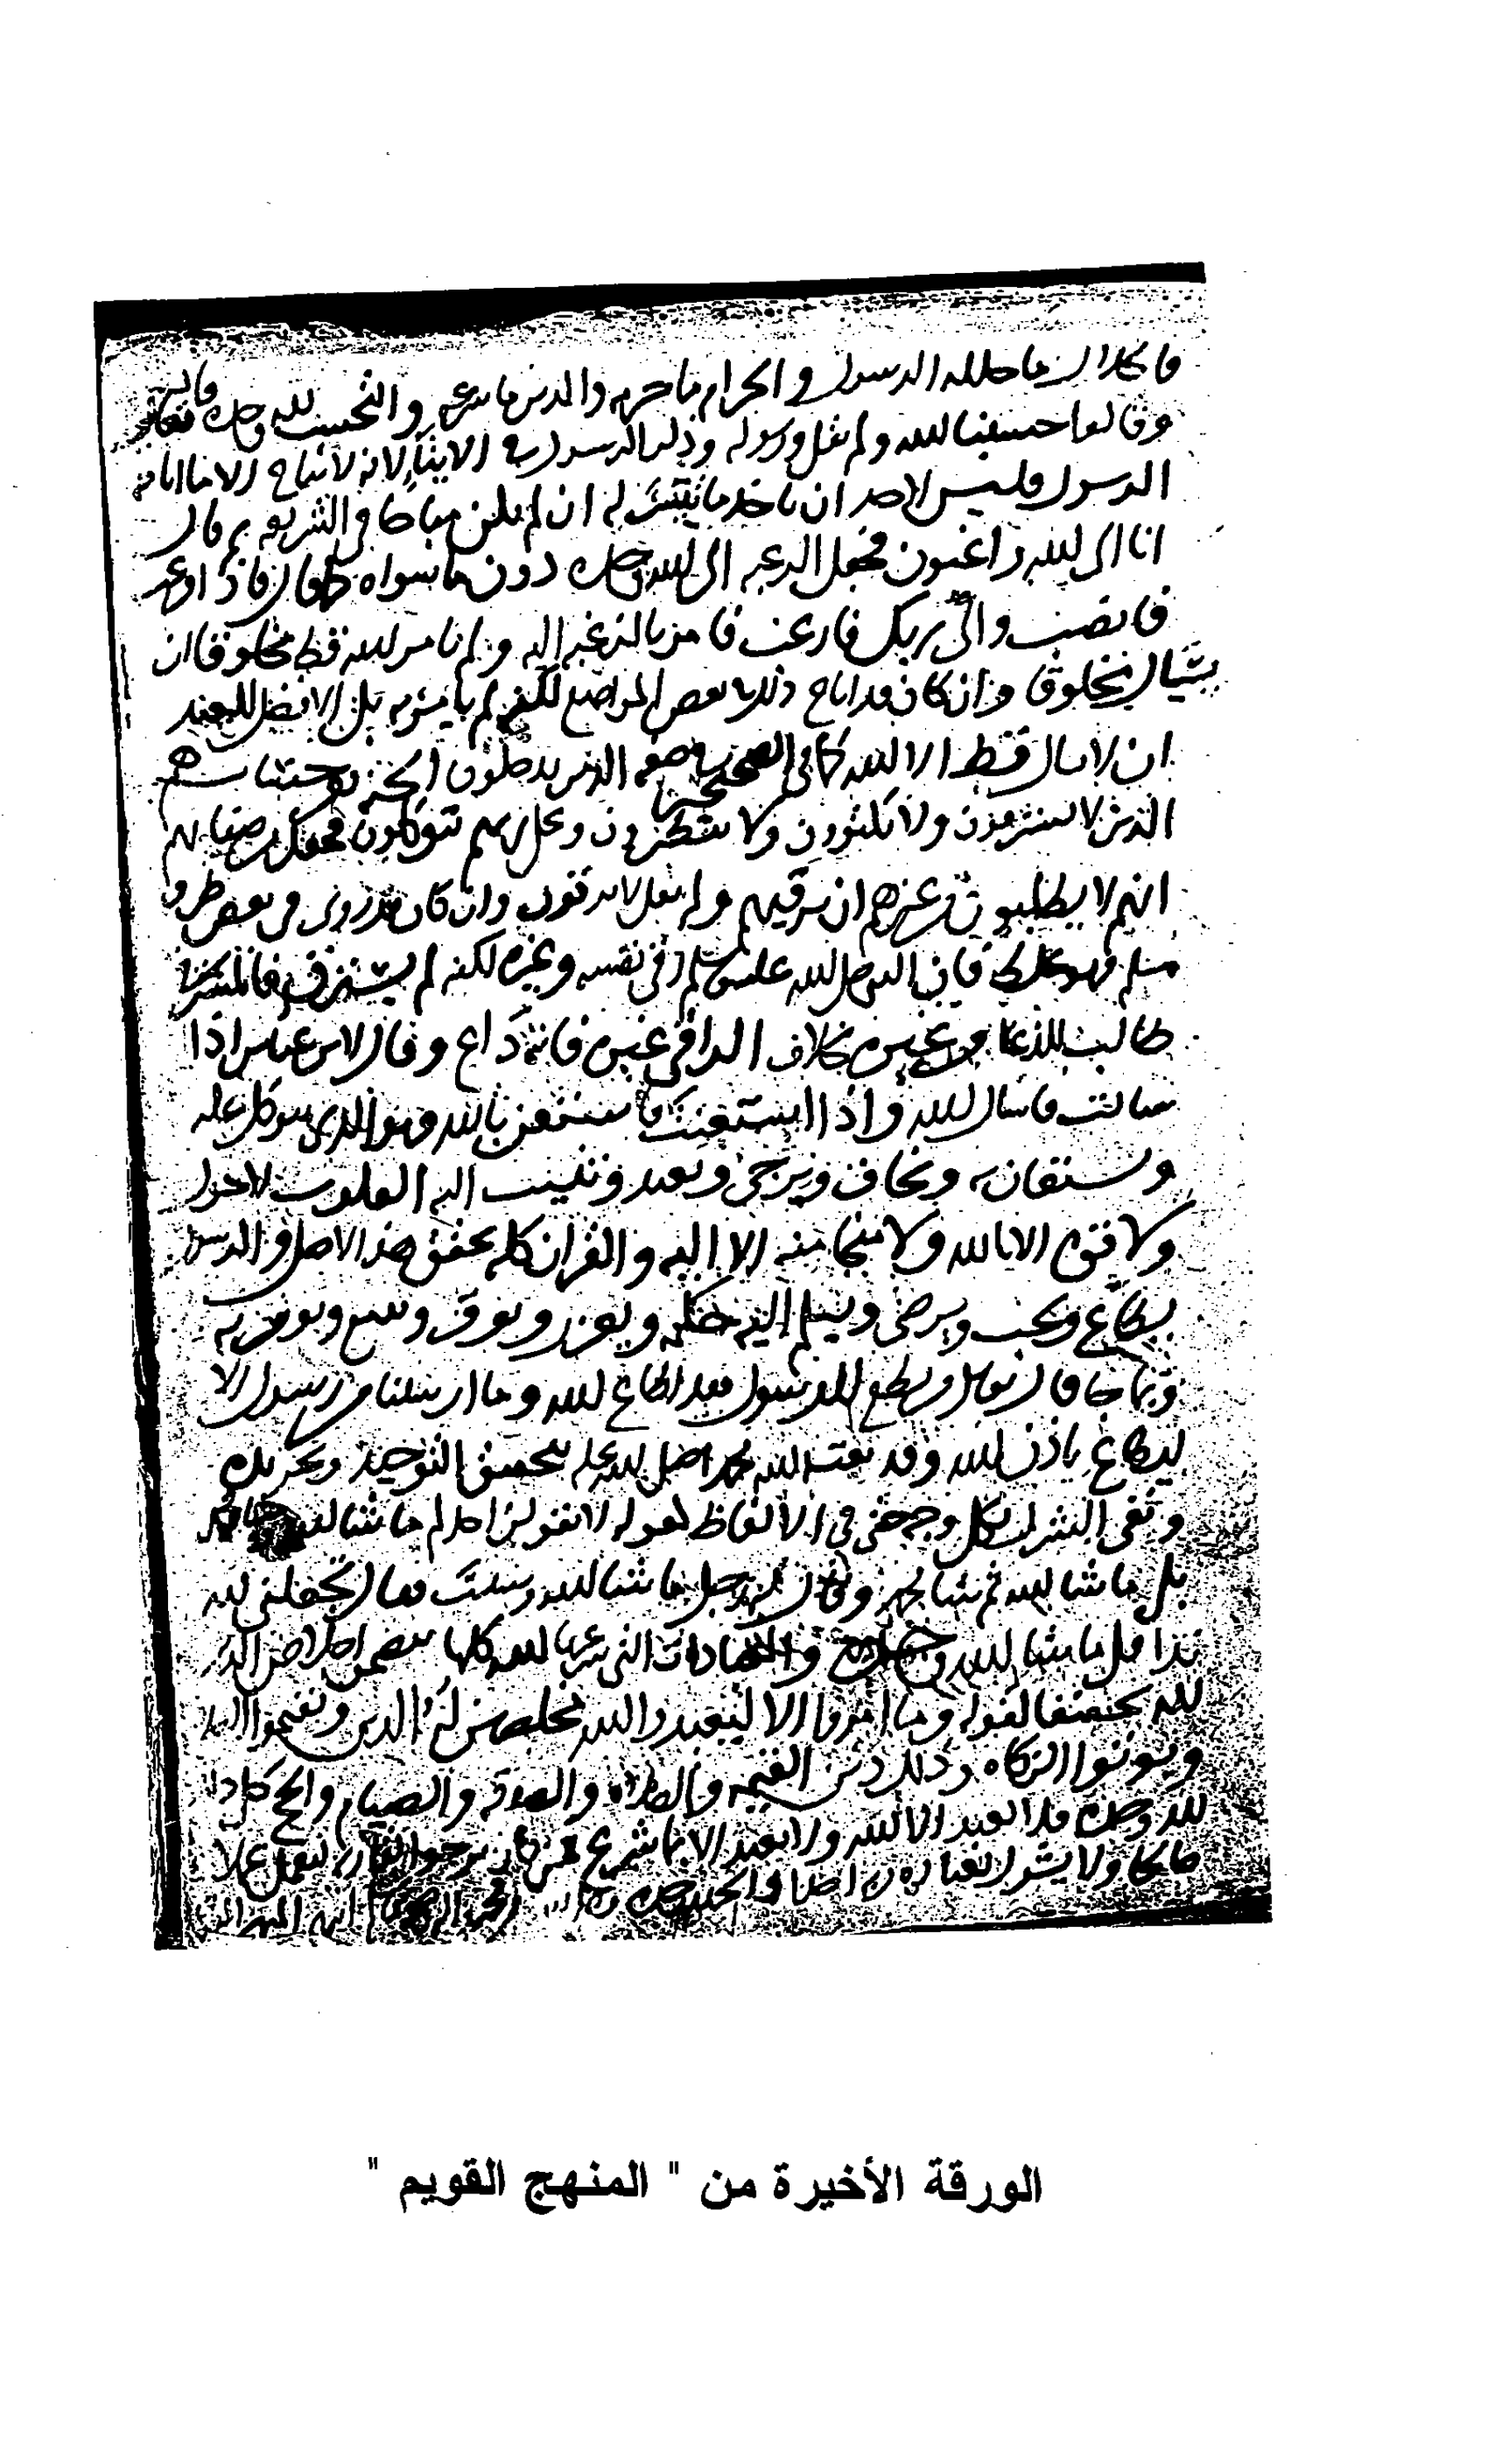 فالحلال ما حلله الرسول والحرام ما حرمه والدين ما شرعه والتحسب لله وحده فقال
وقالوا حسبنا الله ولم يقل ورسوله وذكر الرسول في الايتاء لانه لا يباح الا ما اباحه
الرسول فليس لاحد ان ياخذ ما تيسر له ان لم يكن مباحا في الشريعه ثم قال
انا الى الله راغبون فجعل الرغبه الى الله وحده دون ما سواه كما قال فاذا فرغت
فانصب والى ربك فارغب فامر بالرغبه اليه ولم يامر الله قط مخلوقا ان
يسال مخلوقا وان كان قد اباح ذلك في بعض المواضع لكنه لم يامر به بل الافضل للعبد
ان لا يسال قط الا الله كما في الصحيحين في صفه الذين يدخلون الجنه بغير حساب هم
الذين لا يسترقون ولا يكتوون ولا يتطيرون وعلى ربهم يتوكلون فجعل من صفاتهم
انهم لا يطلبون من غيرهم ان يرقيهم ولم يقل لا يرقون وان كان قد روي في بعض طرق
مسلم فهو غلط فان النبي صلى الله عليه وسلم رقى نفسه وغيره لكنه لم يسترق فالمسترقي
طالب للدعا من غيره بخلاف الراقي غيره فانه داع وقال لابن عباس اذا
سالت فاسال الله واذا استعنت فاستعن بالله فهو الذي يتوكل عليه
ويستعان به ويخاف ويرجى ويعبد وتنيب اليه القلوب لا حول
ولا قوه الا بالله ولا منجا منه الا اليه والقران كله يحقق هذا الاصل والرسول
يطاع ويحب ويرضى ويسلم اليه حكمه ويعزر ويوقر ويتبع ويومن به
وبما جا قال تعالى من يطع الرسول فقد اطاع الله وما ارسلنا من رسول الا
ليطاع باذن الله وقد بعث الله محمدا صلى الله عليه بتحقيق التوحيد وتجريده
ونفي الشرك بكل وجه حتى في الالفاظ كقوله لا يقولن احدكم ما شا الله وشا محمد
بل ما شا الله ثم شا محمد وقال له رجل ما شا الله وشئت فقال اتجعلني لله
ندا قل ما شا الله وحده والعبادات التي شرعها الله كلها تتضمن اخلاص الدين
لله تحقيقا لقوله وما امروا الا ليعبدوا الله مخلصين له الدين ويقيموا الصلاه
ويوتوا الزكاه وذلك دين القيمه فالصلاه والصدقه والصيام والحج كل ذلك
لله وحده فلا يعبد الا الله ولا يعبد الا بما شرع فمن كان يرجو لقا ربه فليعمل عملا
صالحا ولا يشرك بعباده ربه احدا والحمد لله
الورقة الأخيرة من " المنهج القويم "